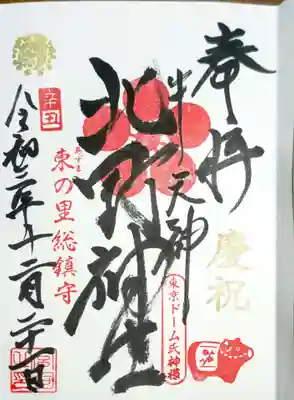 奉拝
慶祝
牛天神
北野神社
東京ドーム氏神様
あずま
東の里総鎮守
辛丑
令和年十二月日